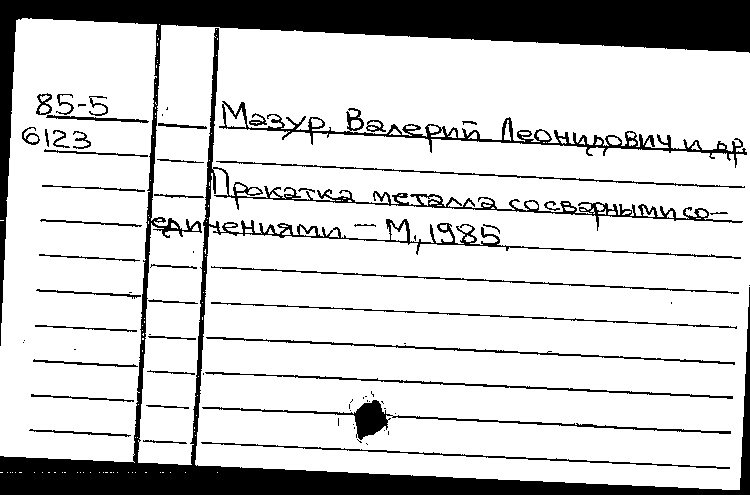 85-5
6123
Мазур, Валерий Леонидович и др.
Прокатка металла со сварными со-
единениями. — М., 1985.